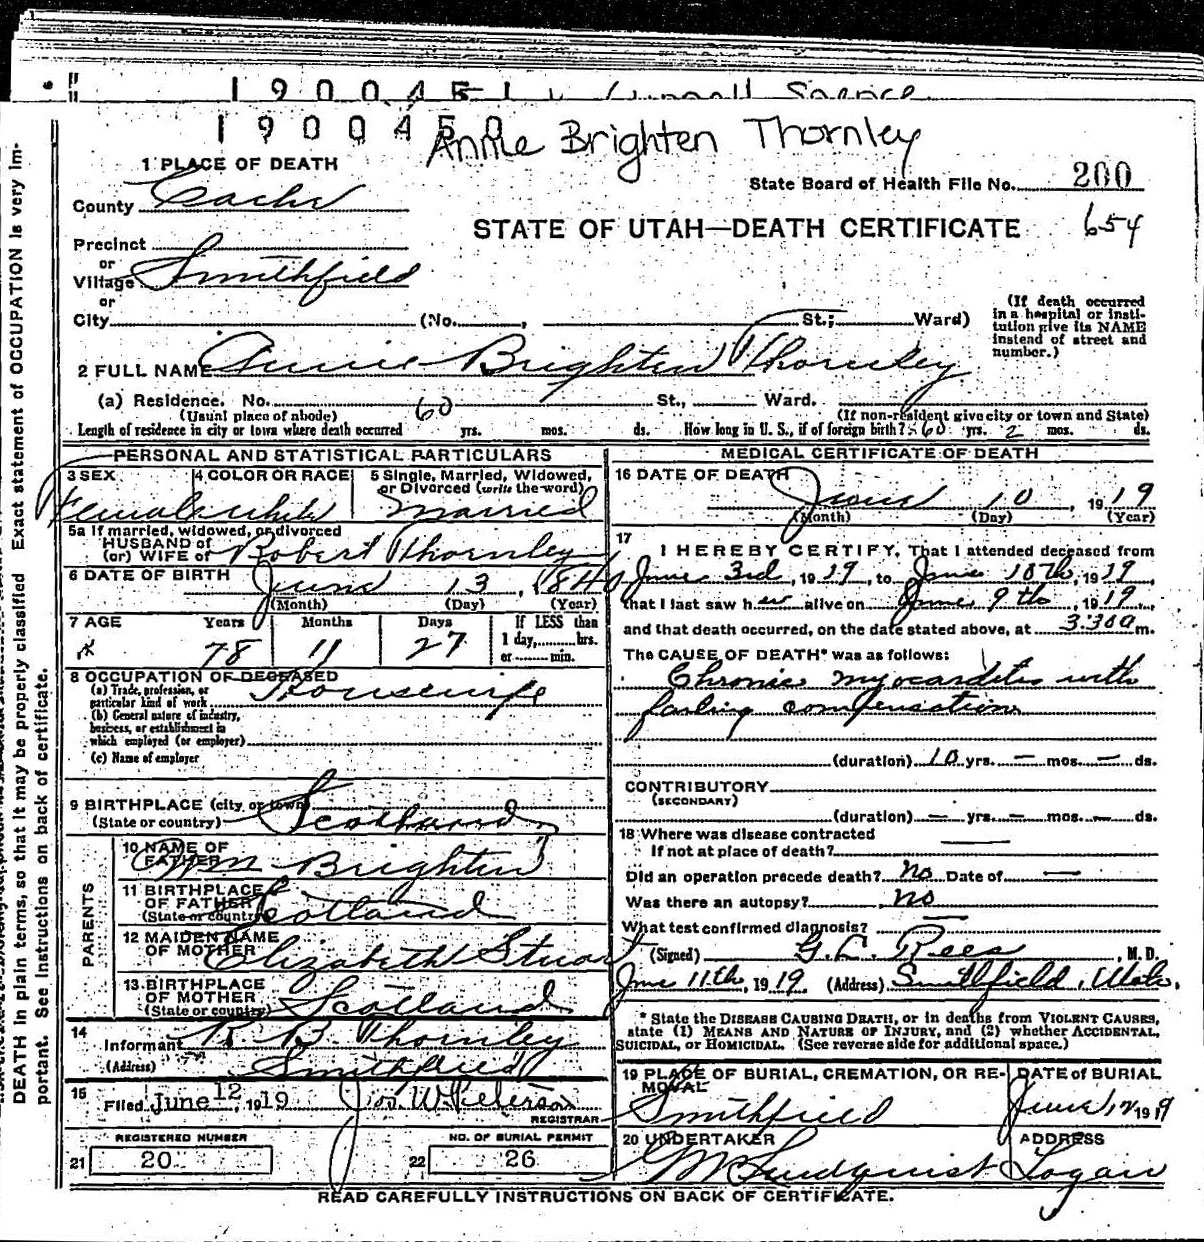 1900451
1900450 Annie Brighten Thornley
1 PLACE OF DEATH
County Cache
State Board of Health File No. 200
STATE OF UTAH—DEATH CERTIFICATE 654
Precinct
or
Village Smithfield
or
City (No. , St.; Ward)
(If death occurred in a hospital or insti-
tution give its NAME instead of street and number.)
2 FULL NAME Annie Brighten Thornley
(a) Residence. No. St., Ward.
(Usual place of abode) (If non-resident give city or town and State)
Length of residence in city or town where death occurred 60 yrs. mos. ds. How long in U. S., if of foreign birth? 60 yrs. 2 mos. ds.
PERSONAL AND STATISTICAL PARTICULARS
3 SEX Female
4 COLOR OR RACE white
5 Single, Married, Widowed, or Divorced (write the word) Married
5a If married, widowed, or divorced
HUSBAND of
(or) WIFE of Robert Thornley
6 DATE OF BIRTH June 13, 1840
(Month) (Day) (Year)
7 AGE Years Months Days If LESS than
78 11 27 1 day, hrs.
or min.
8 OCCUPATION OF DECEASED
(a) Trade, profession, or
particular kind of work Housewife
(b) General nature of industry,
business, or establishment in
which employed (or employer)
(c) Name of employer
9 BIRTHPLACE (city or town)
(State or country) Scotland
PARENTS
10 NAME OF FATHER Wm Brighten
11 BIRTHPLACE OF FATHER
(State or country) Scotland
12 MAIDEN NAME OF MOTHER Elizabeth Stuart
13 BIRTHPLACE OF MOTHER
(State or country) Scotland
14
Informant R. B. Thornley
(Address) Smithfield
15
Filed June 12, 1919 Jos. W. Peterson
REGISTRAR
REGISTERED NUMBER NO. OF BURIAL PERMIT
21 20 22 26
MEDICAL CERTIFICATE OF DEATH
16 DATE OF DEATH June 10, 1919
(Month) (Day) (Year)
17
I HEREBY CERTIFY, That I attended deceased from
June 3rd, 1919, to June 10th, 1919,
that I last saw her alive on June 9th, 1919,
and that death occurred, on the date stated above, at 3:30 a m.
The CAUSE OF DEATH* was as follows:
Chronic myocarditis with
failing compensation
(duration) 10 yrs. — mos. — ds.
CONTRIBUTORY
(SECONDARY)
(duration) — yrs. — mos. — ds.
18 Where was disease contracted
If not at place of death? —
Did an operation precede death? no Date of —
Was there an autopsy? no
What test confirmed diagnosis? —
(Signed) G. L. Rees, M. D.
June 11th, 1919. (Address) Smithfield, Utah.
* State the DISEASE CAUSING DEATH, or in deaths from VIOLENT CAUSES,
state (1) MEANS AND NATURE OF INJURY, and (2) whether ACCIDENTAL,
SUICIDAL, or HOMICIDAL. (See reverse side for additional space.)
19 PLACE OF BURIAL, CREMATION, OR RE-
MOVAL DATE of BURIAL
Smithfield June 12 1919
20 UNDERTAKER ADDRESS
Lundquist Logan
READ CAREFULLY INSTRUCTIONS ON BACK OF CERTIFICATE.
DEATH in plain terms, so that it may be properly classified. Exact statement of OCCUPATION is very im-
portant. See Instructions on back of certificate.